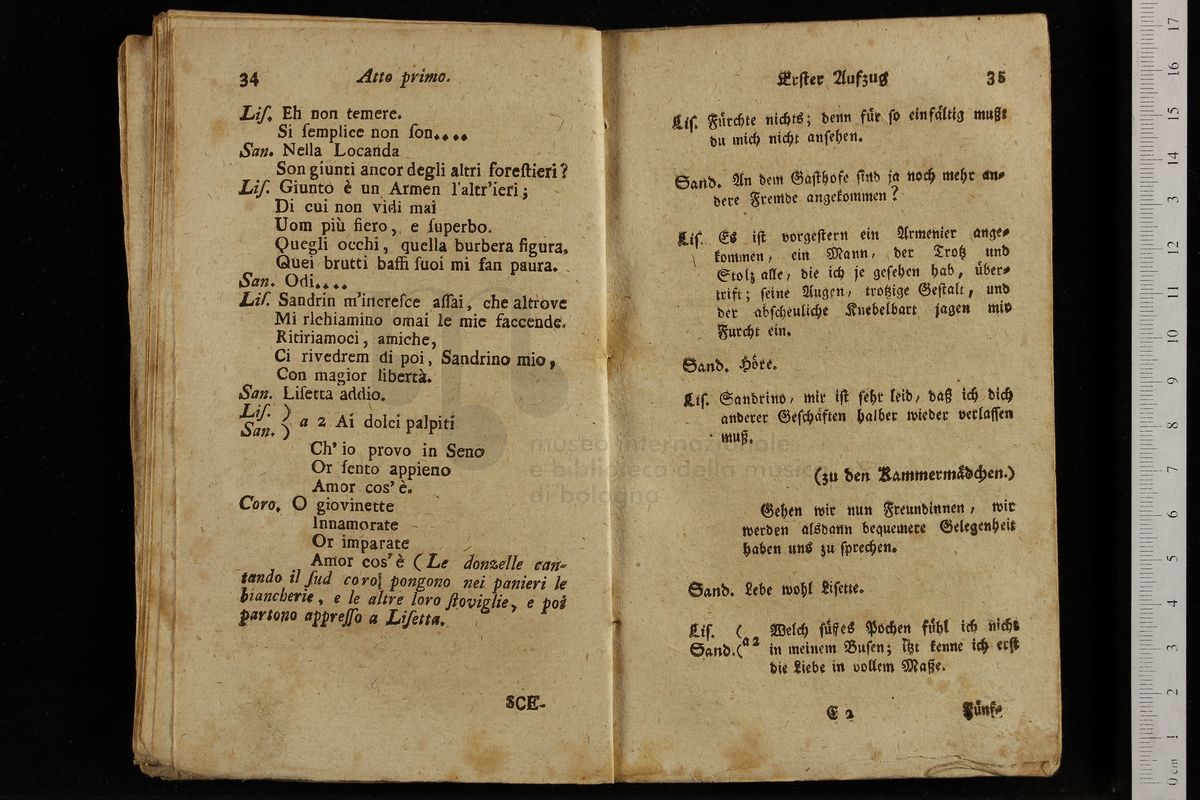 34 Atto primo.
Liſ. Eh non temere.
Si ſemplice non ſon....
San. Nella Locanda
Son giunti ancor degli altri foreſtieri?
Liſ. Giunto è un Armen l'altr'ieri;
Di cui non vidi mai
Uom più fiero, e ſuperbo.
Quegli occhi, quella burbera figura,
Quei brutti baffi ſuoi mi fan paura.
San. Odi....
Liſ. Sandrin m'increſce aſſai, che altrove
Mi richiamino omai le mie faccende.
Ritiriamoci, amiche,
Ci rivedrem di poi, Sandrino mio,
Con magior libertà.
San. Liſetta addio.
Liſ. )
San. ) a 2 Ai dolci palpiti
Ch' io provo in Seno
Or ſento appieno
Amor cos' è.
Coro. O giovinette
Innamorate
Or imparate
Amor cos' è (Le donzelle can-
tando il ſud coro, pongono nei panieri le
biancherie, e le altre loro ſtoviglie, e poi
partono appreſſo a Liſetta.
SCE-
Erſter Aufzug 35
Liſ. Fürchte nichts; denn für ſo einfältig mußt
du mich nicht anſehen.
Sand. An dem Gaſthofe ſind ja noch mehr an-
dere Fremde angekommen?
Liſ. Es iſt vorgeſtern ein Armenier ange-
kommen, ein Mann, der Trotz und
Stolz alle, die ich je geſehen hab, über-
trift; ſeine Augen, trotzige Geſtalt, und
der abſcheuliche Knebelbart jagen mir
Furcht ein.
Sand. Höre.
Liſ. Sandrino, mir iſt ſehr leid, daß ich dich
anderer Geſchäften halber wieder verlaſſen
muß.
(zu den Kammermädchen.)
Gehen wir nun Freundinnen, wir
werden alsdann bequemere Gelegenheit
haben uns zu ſprechen.
Sand. Lebe wohl Liſette.
Liſ. (
Sand. ( a 2 Welch ſüßes Pochen fühl ich nicht
in meinem Buſen; itzt kenne ich erſt
die Liebe in vollem Maße.
C 2 Fünf-
museo internazionale
e biblioteca della musica
di bologna
0 cm 1 2 3 4 5 6 7 8 9 10 11 12 13 14 15 16 17